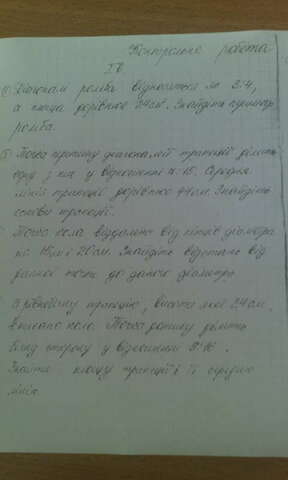 Контрольна робота
ІВ.
Діагоналі ромба відносяться як 3:4,
а площа дорівнює 24см². Знайдіть периметр
ромба.
Точка перетину діагоналей трапеції ділить
одну з них у відношенні 15. Середня
лінія трапеції дорівнює 44см. Знайдіть
основи трапеції.
Точка кола віддалена від кінців діаметра
на 15м і 20см. Знайдіть відстань від
даної точки до даного діаметра
В рівнобічну трапецію, висота якої 24см,
вписано коло. Точка дотику ділить
бічну сторону у відношенні 9:16.
Знайти площу трапеції і її середню
лінію.